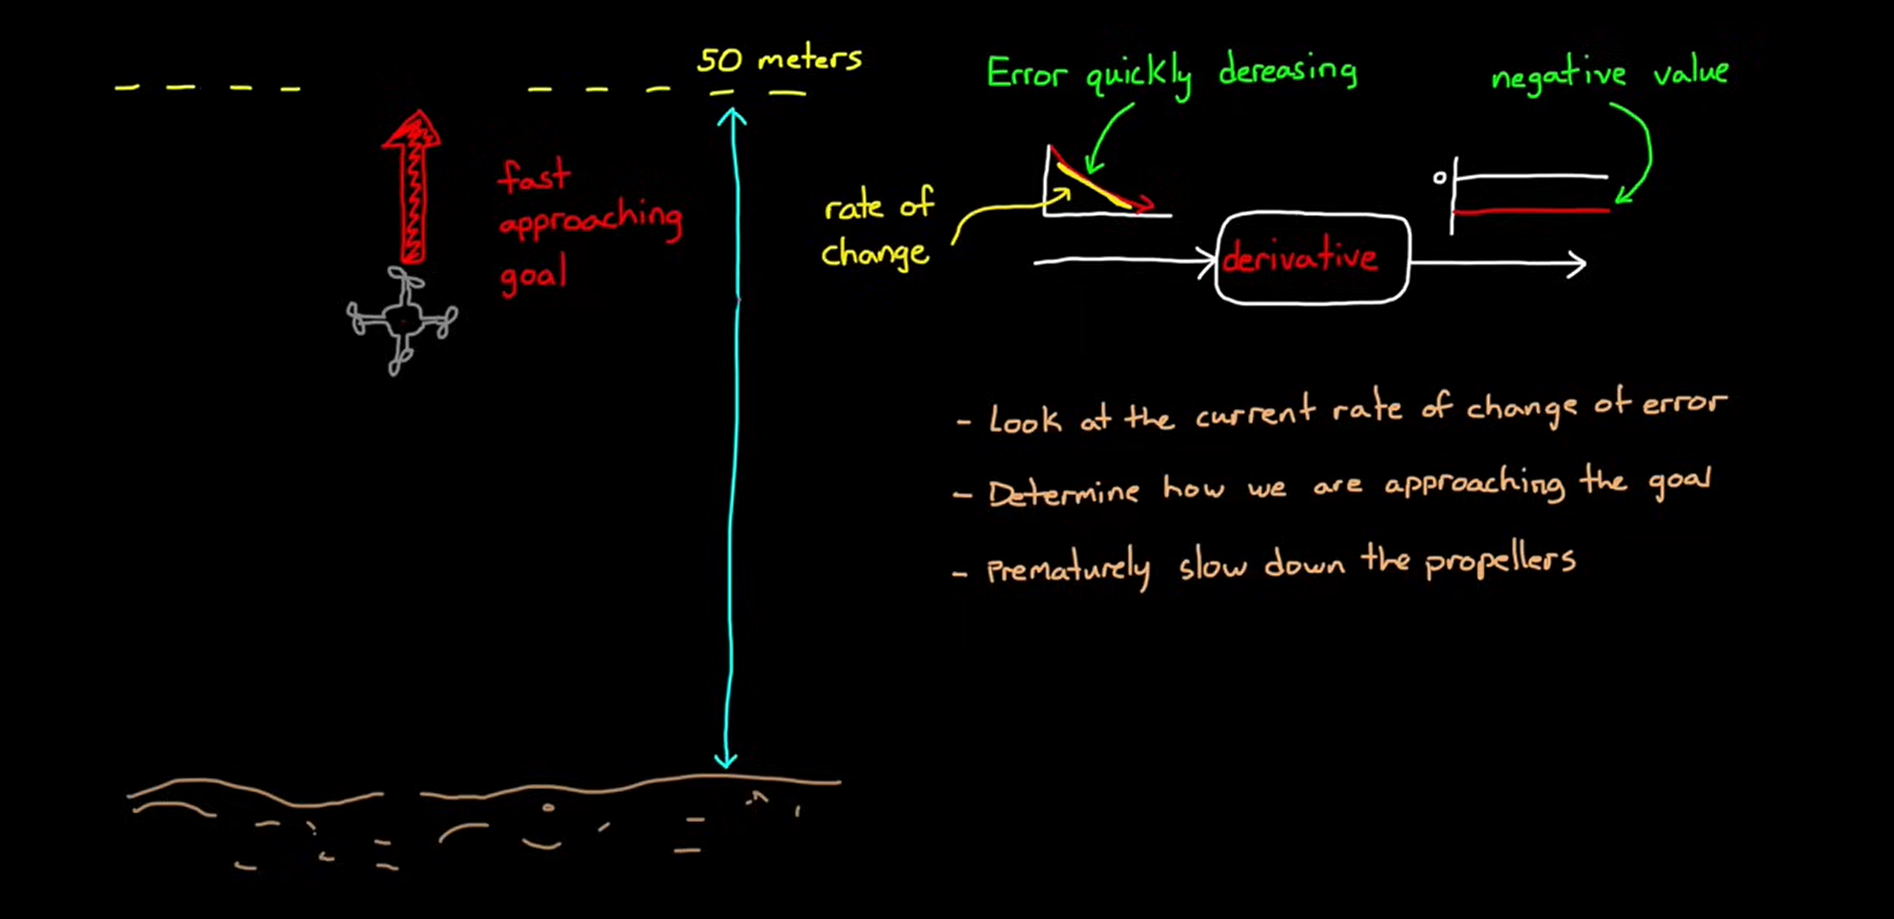 50 meters
fast
approaching
goal
Error quickly dereasing
negative value
rate of
change
0
derivative
- Look at the current rate of change of error
- Determine how we are approaching the goal
- Prematurely slow down the propellers